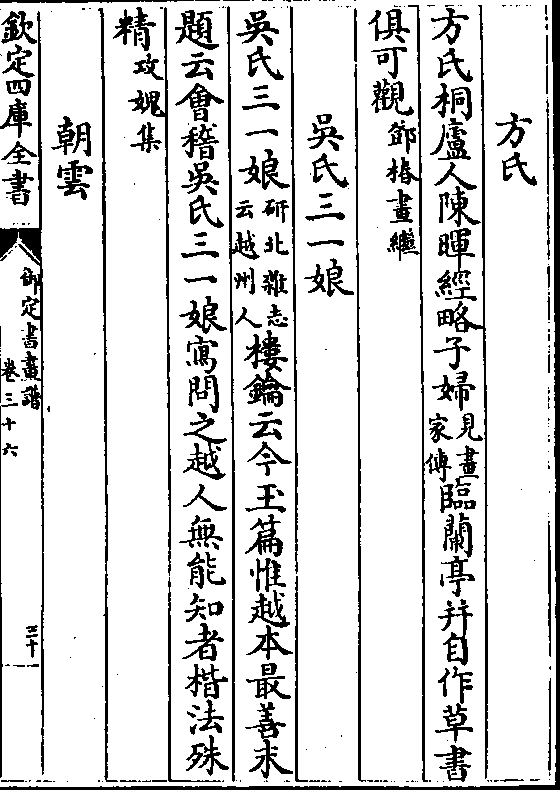 方氏
方氏桐廬人陳暉經略子婦見畫家傳臨蘭亭并自作草書
俱可觀鄧椿畫繼
吳氏三一娘
吳氏三一娘研北雜志云越州人樓鑰云今玉篇惟越本最善末
題云會稽吳氏三一娘寫問之越人無能知者楷法殊
精攻媿集
朝雲
欽定四庫全書
御定書畫譜
卷三十六
三十